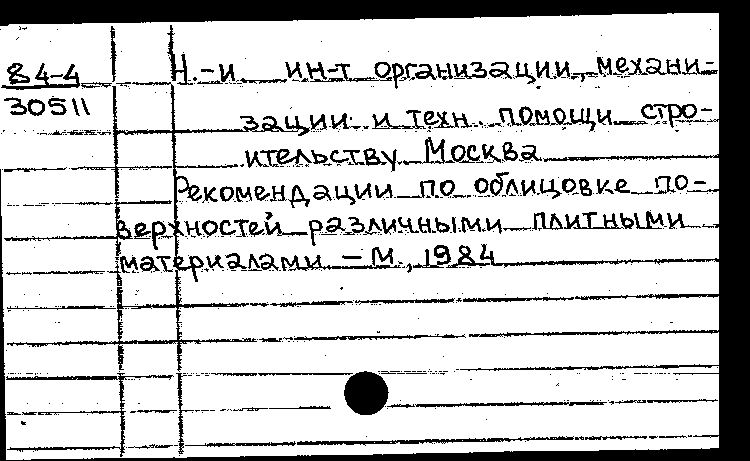 84-4
30511
Н.-и. ин-т организации, механи-
зации и техн. помощи стро-
ительству. Москва
Рекомендации по облицовке по-
верхностей различными плитными
материалами. – М., 1984